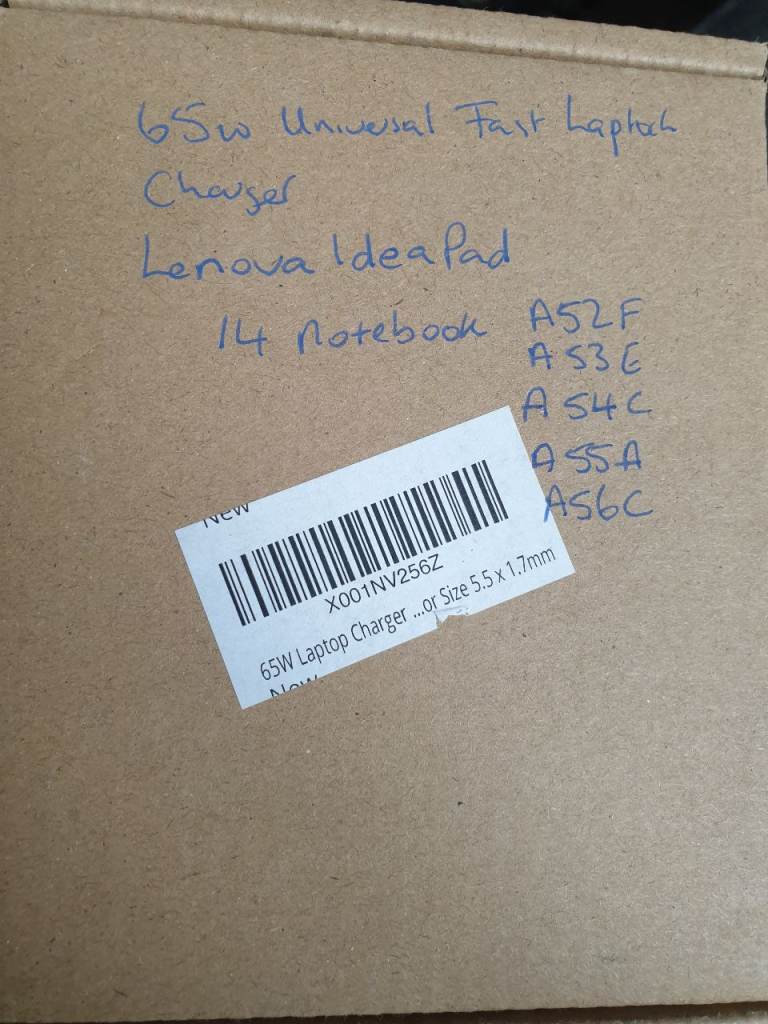 65w Universal Fast Laptoch
Charger
Lenova IdeaPad
14 Notebook A52F
A53E
A54C
A55A
A56C
New
X001NV256Z
65W Laptop Charger ...or Size 5.5 x 1.7mm
New